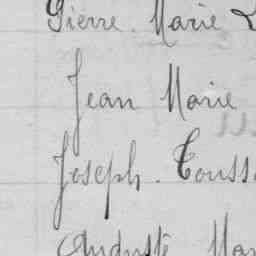 Pierre Marie
Jean Marie
Joseph. Touss
Auguste Mar